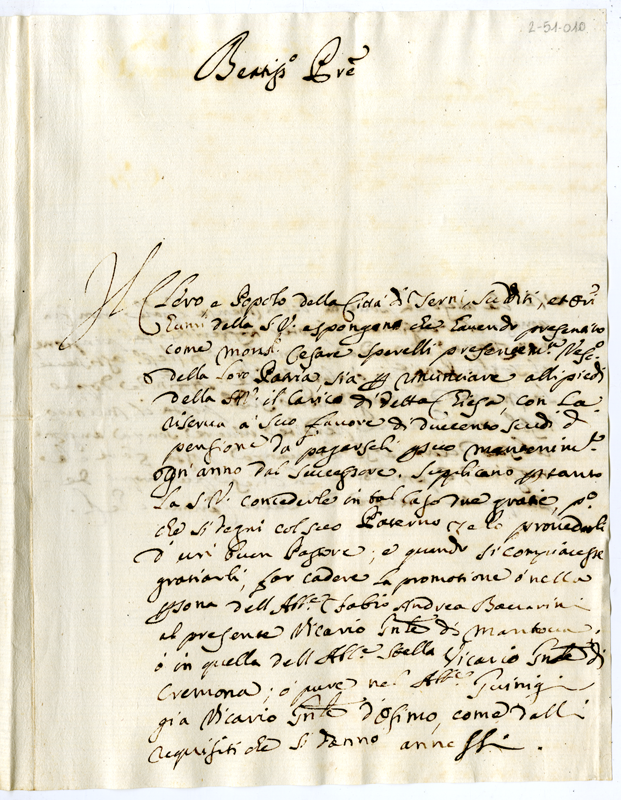 2-51-010
Beatis.º Pre
Il Clero e Popolo della Città di Terni, sudditi, et Or.ri
della S.V. espongono che havendo presentito
come Mons.r Cesare Sperelli presentem.te Vesc.º
della loro Patria sia p rinunciare alli piedi
della S.V. il carico di detta Chiesa, con la
riserva à suo favore di duecento scudi d
pensione da pagarseli p suo mantenim.tº
ogn'anno dal successore. Supplicano p tanto
la S.V. concederle in tal caso due gratie, p.º
che si degni col suo Paterno zelo provederli
d'un buon Pastore; e quando si compiacesse
gratiarli, far cadere la promotione ò nella
psona dell'Abb.e Fabio Andrea Baccarini
al presente Vicario Gnle di Mantova,
ò in quella dell'Abb.e Stella Vicario Gnle di
Cremona; ò pure nel Abb.e Guinigi
già Vicario Gnle d'Osimo, come dalli
requisiti che si danno annessi.